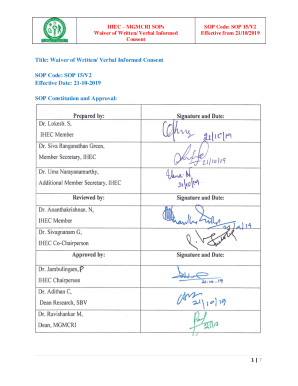 IHEC – MGMCRI SOPs
Waiver of Written/ Verbal Informed
Consent
SOP Code: SOP 15/V2
Effective from 21/10/2019
Title: Waiver of Written/ Verbal Informed Consent
SOP Code: SOP 15/V2
Effective Date: 21-10-2019
SOP Constitution and Approval:
Prepared by:
Signature and Date:
Dr. Lokesh, S,
IHEC Member
21/10/19
Dr. Siva Ranganathan Green,
Member Secretary, IHEC
21/10/19
Dr. Uma Narayanamurthy,
Additional Member Secretary, IHEC
Uma N
21/10/19
Reviewed by:
Signature and Date:
Dr. Ananthakrishnan, N,
IHEC Member
Dr. Sivagnanam G,
IHEC Co-Chairperson
Approved by:
Signature and Date:
Dr. Jambulingam, P
IHEC Chairperson
21-10-19
Dr. Adithan C,
Dean Research, SBV
21/10/19
Dr. Ravishankar M,
Dean, MGMCRI
1 | 7